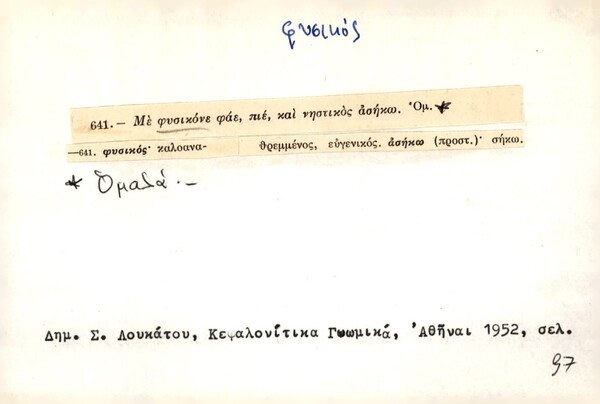 φυσικός
641.— Μὲ φυσικόνε φάε, πιέ, καὶ νηστικὸς ἀσήκω. Ὁμ.*
—641. φυσικός· καλοανα- θρεμμένος, εὐγενικός. ἀσήκω (προστ.)· σήκω.
* Ὁμαλά.—
Δημ. Σ. Λουκάτου, Κεφαλονίτικα Γνωμικά, Ἀθῆναι 1952, σελ.
97